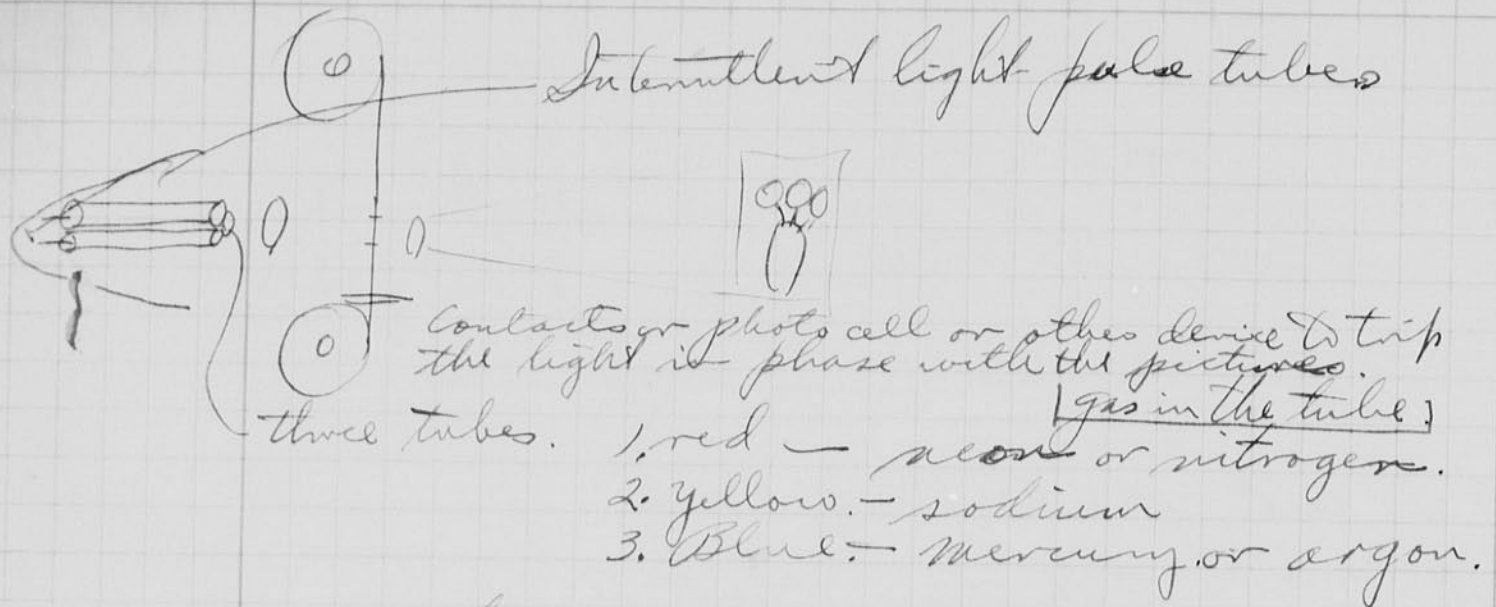 Intermittent light pulse tubes
Contacts or photo cell or other device to trip
the light in phase with the pictures.
[gas in the tube]
three tubes. 1. red — neon or nitrogen.
2. Yellow. — sodium
3. Blue. — mercury or argon.